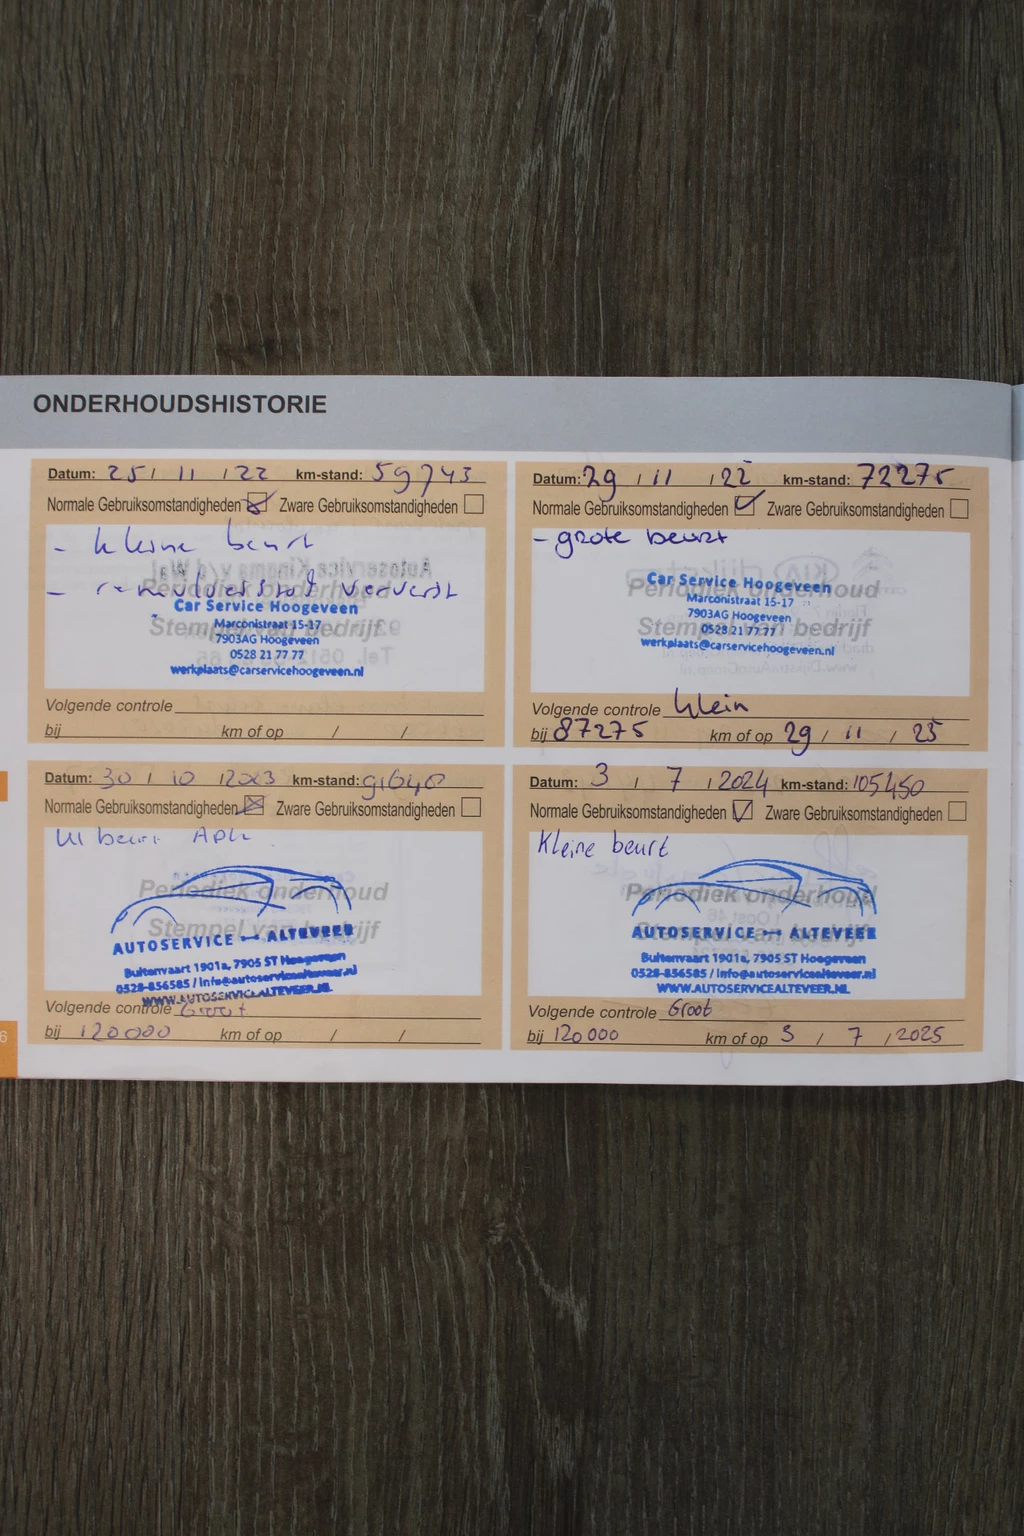 ONDERHOUDSHISTORIE
Datum: 25 / 11 / 22 km-stand: 59743
Normale Gebruiksomstandigheden Zware Gebruiksomstandigheden
- kleine beurt
- remvloeistof ververst
Periodiek onderhoud
Stempel van bedrijf
Car Service Hoogeveen
Marconistraat 15-17
7903AG Hoogeveen
0528 21 77 77
werkplaats@carservicehoogeveen.nl
Volgende controle
bij km of op / /
Datum: 29 / 11 / 22 km-stand: 72275
Normale Gebruiksomstandigheden Zware Gebruiksomstandigheden
- grote beurt
Periodiek onderhoud
Stempel van bedrijf
Car Service Hoogeveen
Marconistraat 15-17
7903AG Hoogeveen
0528 21 77 77
werkplaats@carservicehoogeveen.nl
Volgende controle klein
bij 87275 km of op 29 / 11 / 23
Datum: 30 / 10 / 2023 km-stand: 91640
Normale Gebruiksomstandigheden Zware Gebruiksomstandigheden
kl beurt APK
Periodiek onderhoud
Stempel van bedrijf
AUTOSERVICE ALTEVEER
Buitenvaart 1901a, 7905 ST Hoogeveen
0528-856585 / info@autoservicealteveer.nl
WWW.AUTOSERVICEALTEVEER.NL
Volgende controle Groot
bij 120000 km of op / /
Datum: 3 / 7 / 2024 km-stand: 105450
Normale Gebruiksomstandigheden Zware Gebruiksomstandigheden
Kleine beurt
Periodiek onderhoud
Stempel van bedrijf
AUTOSERVICE ALTEVEER
Buitenvaart 1901a, 7905 ST Hoogeveen
0528-856585 / info@autoservicealteveer.nl
WWW.AUTOSERVICEALTEVEER.NL
Volgende controle Groot
bij 120 000 km of op 3 / 7 / 2025
6